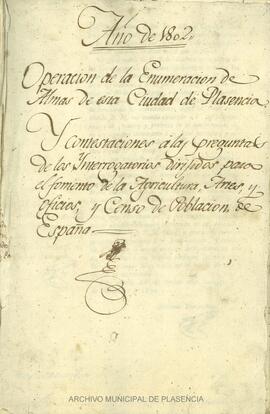 Año de 1802,,
Operacion de la Enumeracion de
Almas de esta Ciudad de Plasencia
Y contestaciones à las preguntas
de los Interrogatorios dirijidos para
el fomento de la Agricultura, Artes, y
oficios, y Censo de Poblacion de
España
ARCHIVO MUNICIPAL DE PLASENCIA